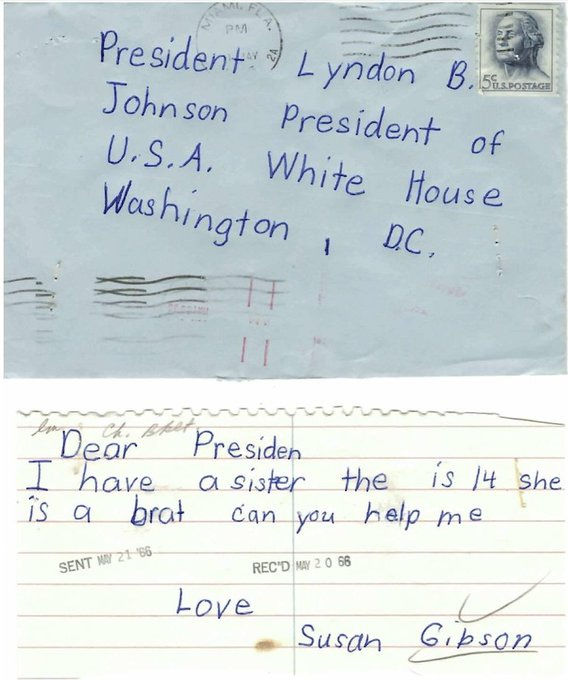 MIAMI, FLA.
PM
5¢ U.S. POSTAGE
President Lyndon B.
Johnson President of
U.S.A. White House
Washington, D.C.
Dear Presiden
I have a sister the is 14 she
is a brat can you help me
SENT MAY 21 '66
REC'D MAY 20 66
Love
Susan Gibson